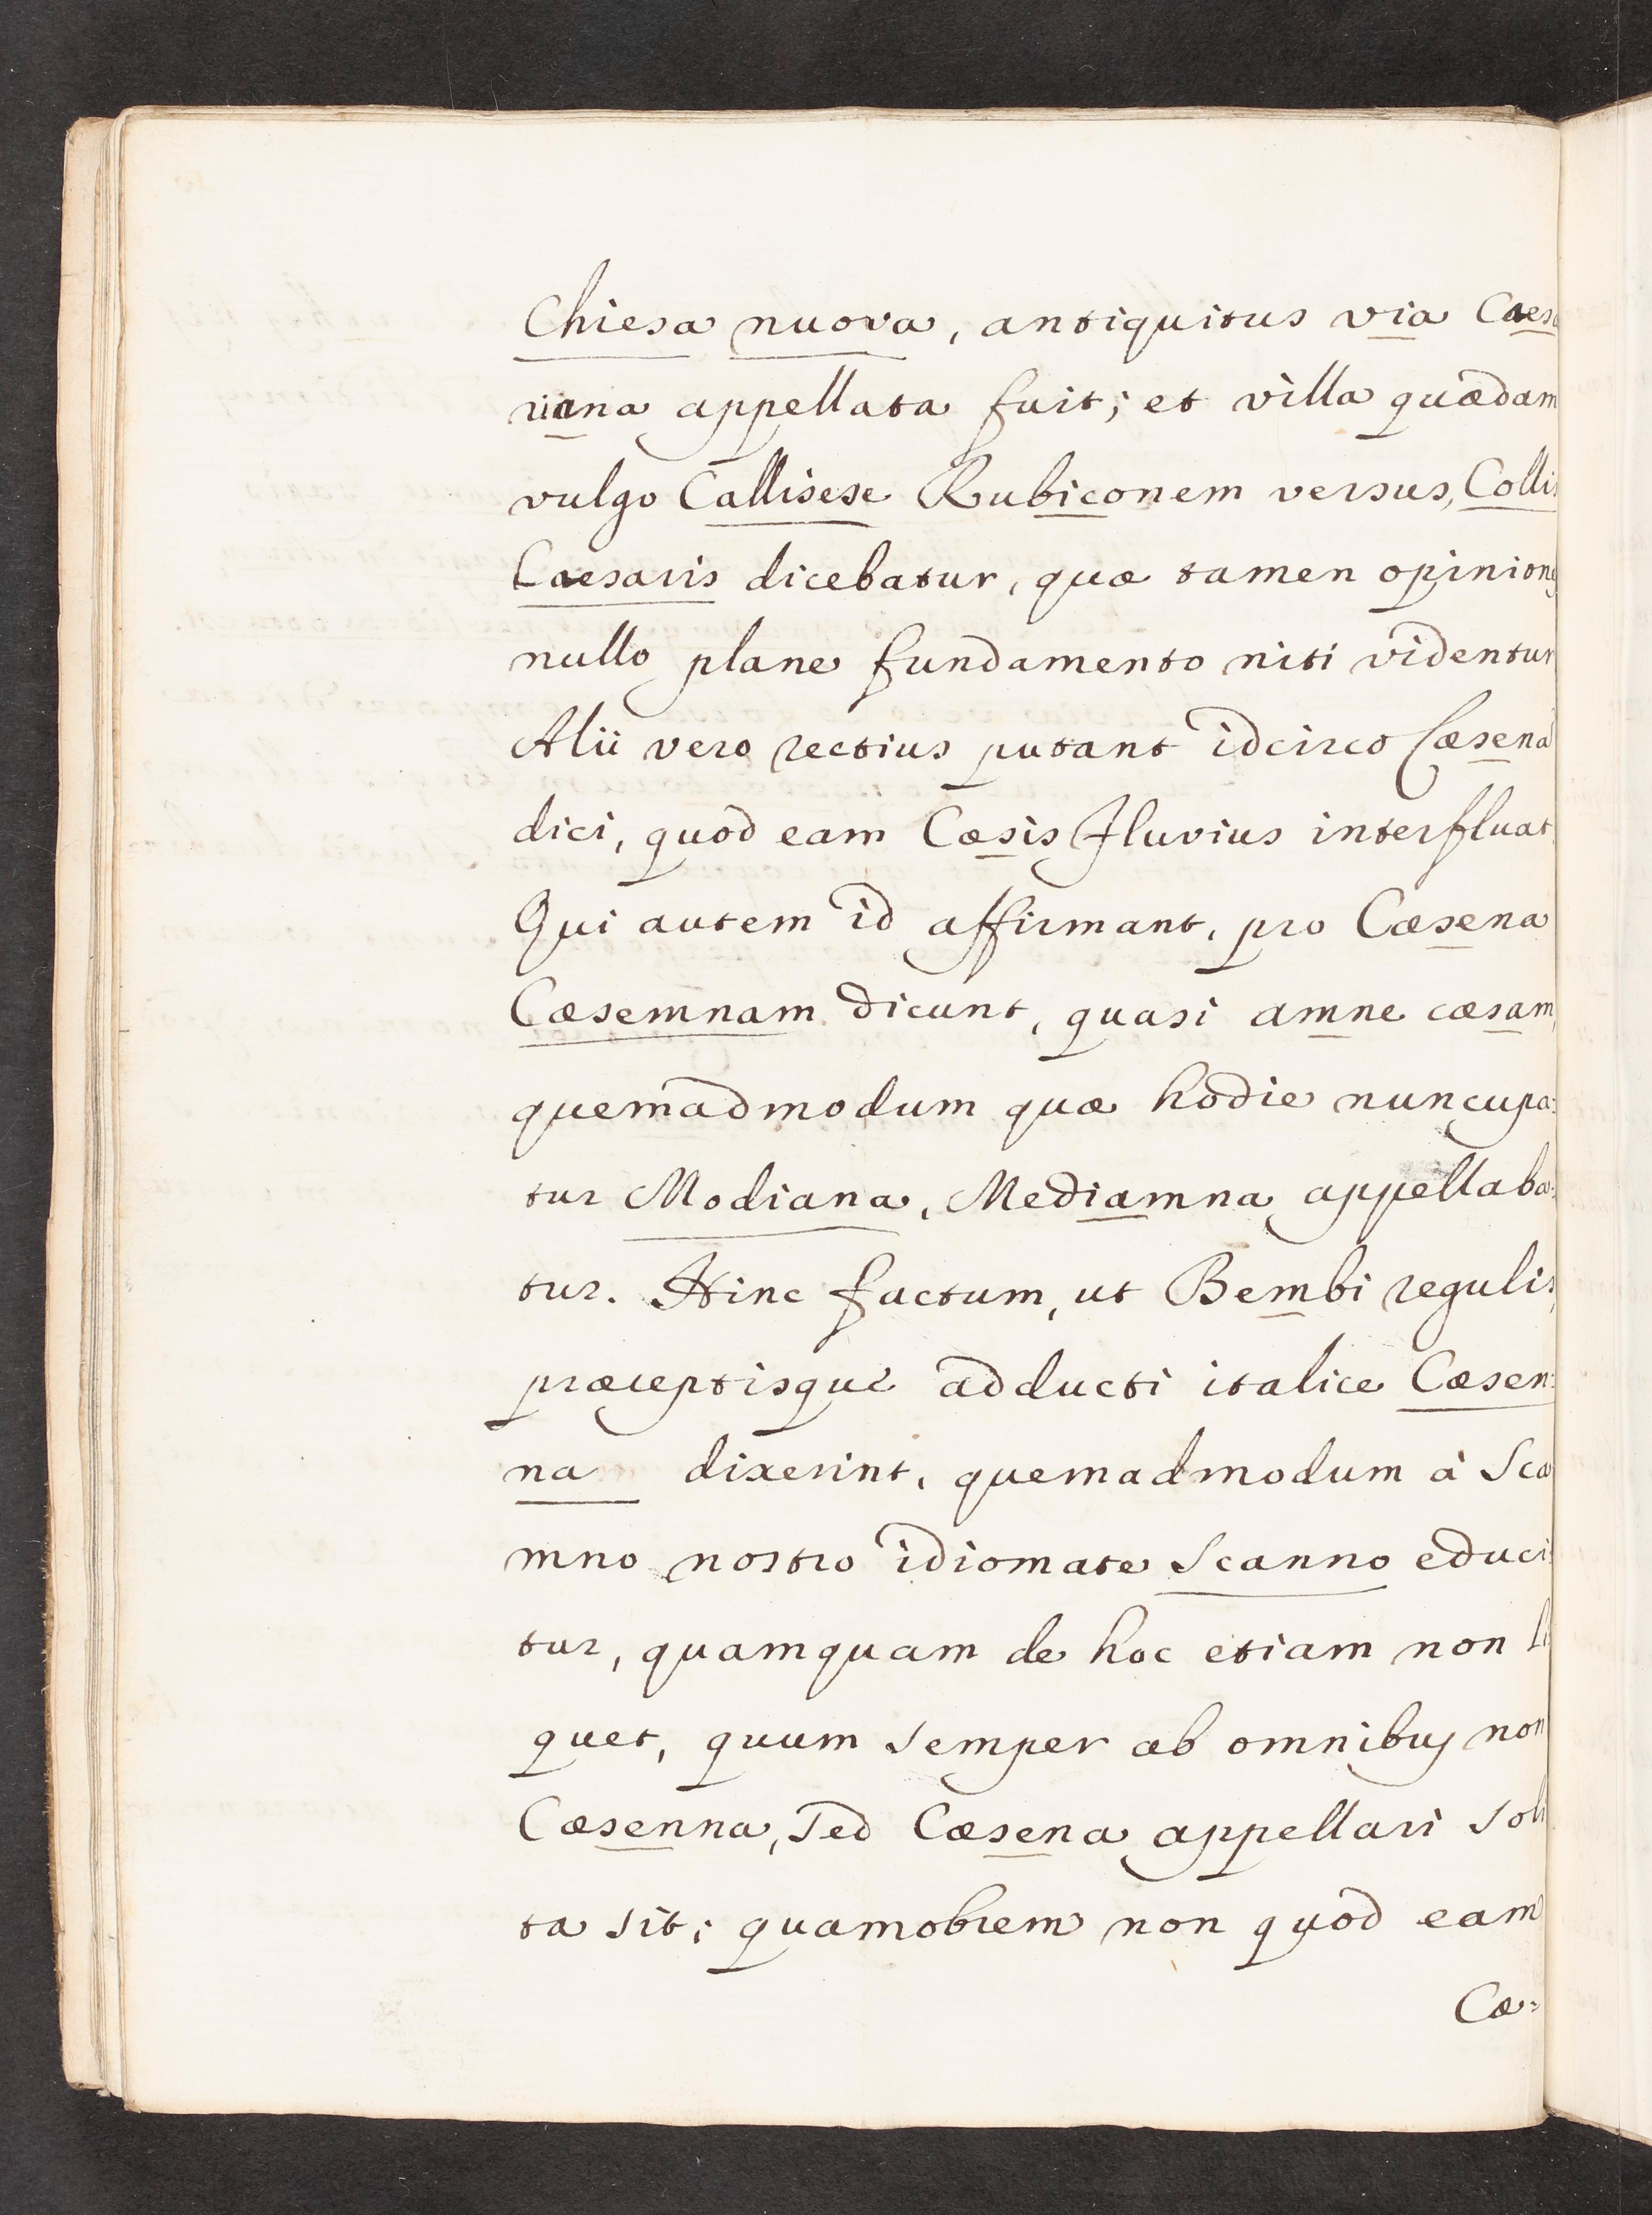 Chiesa nuova, antiquitus via Caesa
riana appellata fuit; et villa quædam
vulgo Callisese Rubiconem versus, Collis
Caesaris dicebatur, quæ tamen opiniones
nullo plane fundamento niti videntur
Alii vero rectius putant idcirco Cæsena
dici, quod eam Cæsis Fluvius interfluat.
Qui autem id affirmant, pro Cæsena
Cæsemnam dicunt, quasi amne cæsam,
quemadmodum quæ hodie nuncupa:
tur Modiana, Mediamna appellaba:
tur. Hinc factum, ut Bembi regulis,
præceptisque adducti italice Cæsen:
na dixerint, quemadmodum à Sca
mno nostro idiomate Scanno educi
tur, quamquam de hoc etiam non li
quet, quum semper ab omnibus non
Cæsenna, sed Cæsena appellari soli
ta sit; quamobrem non quod eam
Cæ: